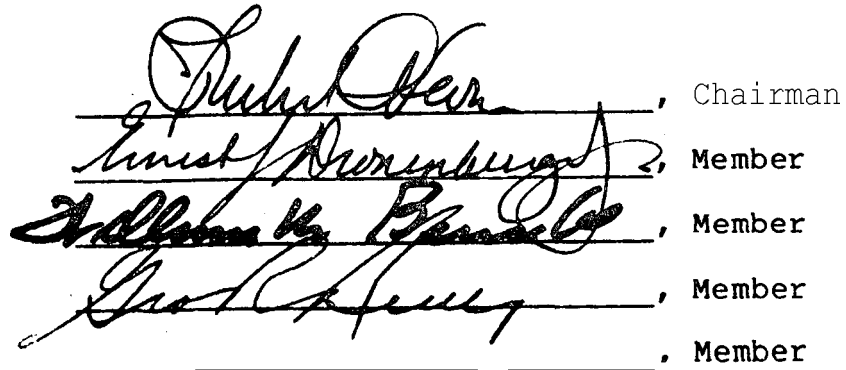 , Chairman
Ernest J Dronenburg Jr, Member
William M. Bennett, Member
Geo R Reilly, Member
, Member